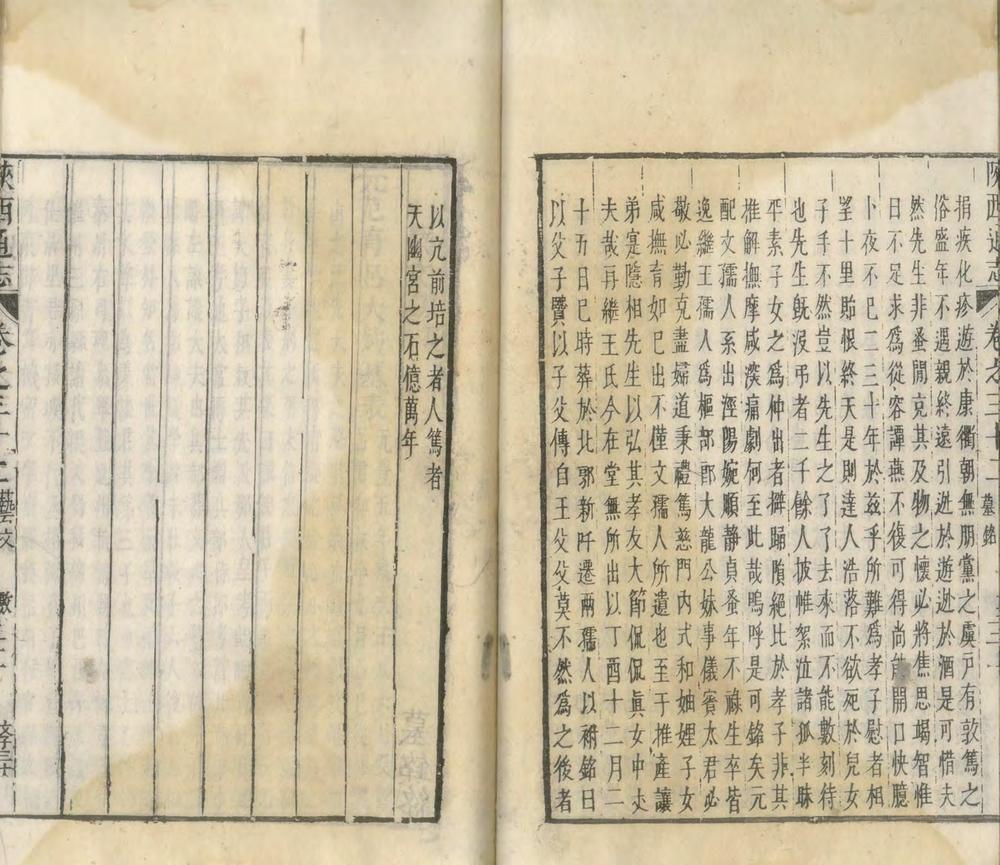 陝西通志 卷之三十二 墓銘
捐疾化疹遊於康衢朝無朋黨之虞戶有敦篤之
俗盛年不遇親終遠引逃於遊逃於酒是可惜夫
然先生非蚤閒克其及物之懷必將焦思竭智惟
日不足求為從容譚燕不復可得尚能開口快臆
卜夜不巳三三十年於茲乎所難為孝子慰者相
望十里踣恨終天是則達人浩落不欲死於兒女
子手不然豈以先生之了了去來而不能數刻待
也先生旣沒弔者二千餘人披帷絮泣諸孤半昧
平素子女之為仲出者擗歸隕絕比於孝子非其
推解撫摩咸浹痛劇何至此哉嗚呼是可銘矣元
配文孺人系出涇陽婉順靜貞蚤年不祿生卒皆
逸繼王孺人為樞部郎大龍公妹事儀賓太君必
敬必勤克盡婦道秉禮篤慈門內式和妯娌子女
咸撫育如巳出不僅文孺人所遺也至于推產讓
弟寔隱相先生以弘其孝友大節侃侃眞女中丈
夫哉再繼王氏今在堂無所出以丁酉十二月二
十五日巳時葬於北郭新阡遷兩孺人以祔銘曰
以父子賢以子父傳自王父父莫不然為之後者
以亢前培之者人篤者
天幽宮之石億萬年
陝西通志 卷之三十二 藝文